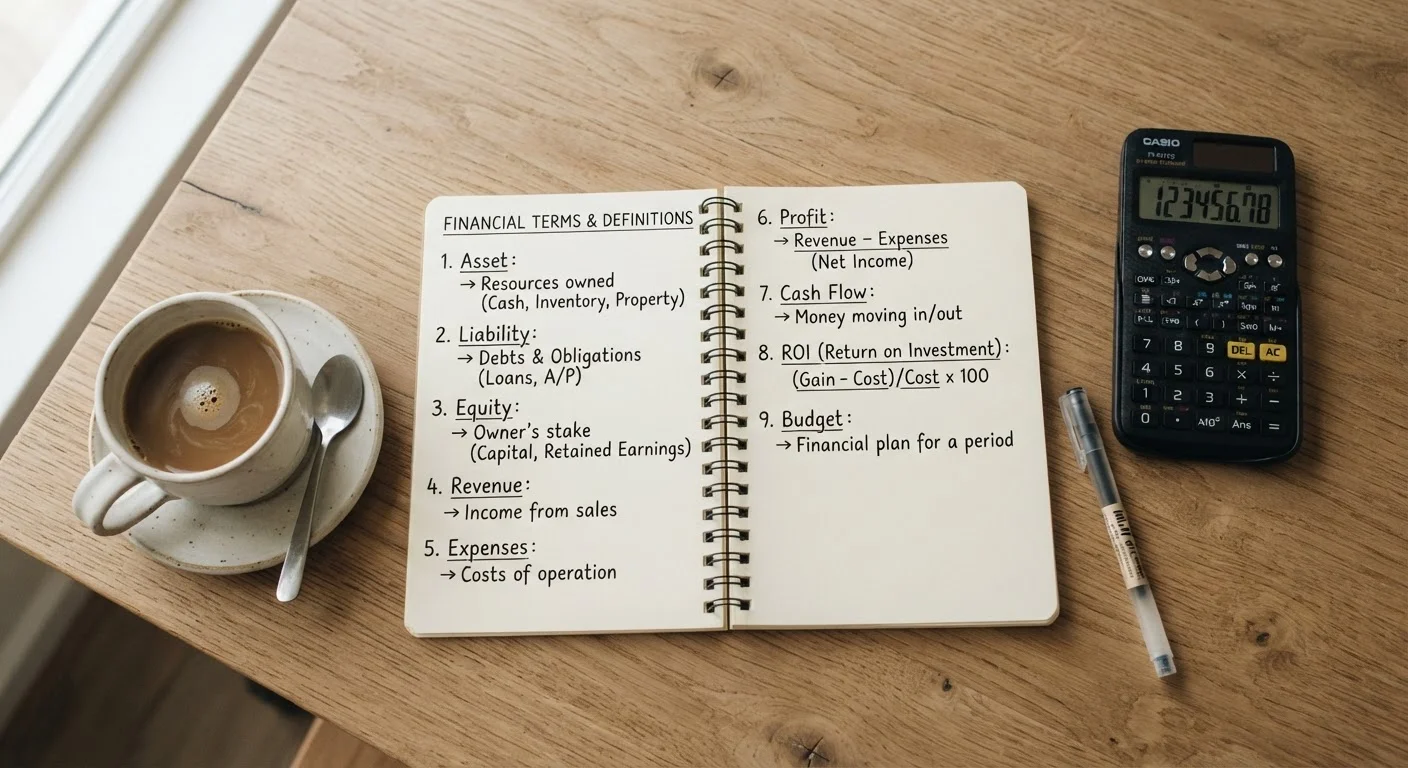 FINANCIAL TERMS & DEFINITIONS
1. Asset:
→ Resources owned
(Cash, Inventory, Property)
2. Liability:
→ Debts & Obligations
(Loans, A/P)
3. Equity:
→ Owner's stake
(Capital, Retained Earnings)
4. Revenue:
→ Income from sales
5. Expenses:
→ Costs of operation
6. Profit:
→ Revenue – Expenses
(Net Income)
7. Cash Flow:
→ Money moving in/out
8. ROI (Return on Investment):
(Gain – Cost)/Cost x 100
9. Budget:
→ Financial plan for a period
CASIO
12345678
7 8 9 DEL AC
4 5 6 × ÷
1 2 3 + −
0 . Ans =